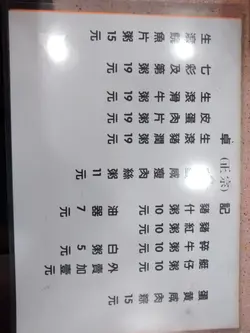 卓(正宗)記
生滾魚片粥 15元
七彩及第粥 19元
生滾滑牛粥 19元
皮蛋肉粥 19元
生滾豬潤粥 19元
咸瘦肉絲粥 11元
豬什粥 10元
豬紅粥 10元
碎牛粥 10元
艇仔粥 10元
油器 7元
白粥 5元
外賣加壹元
蛋黃咸肉粽 15元